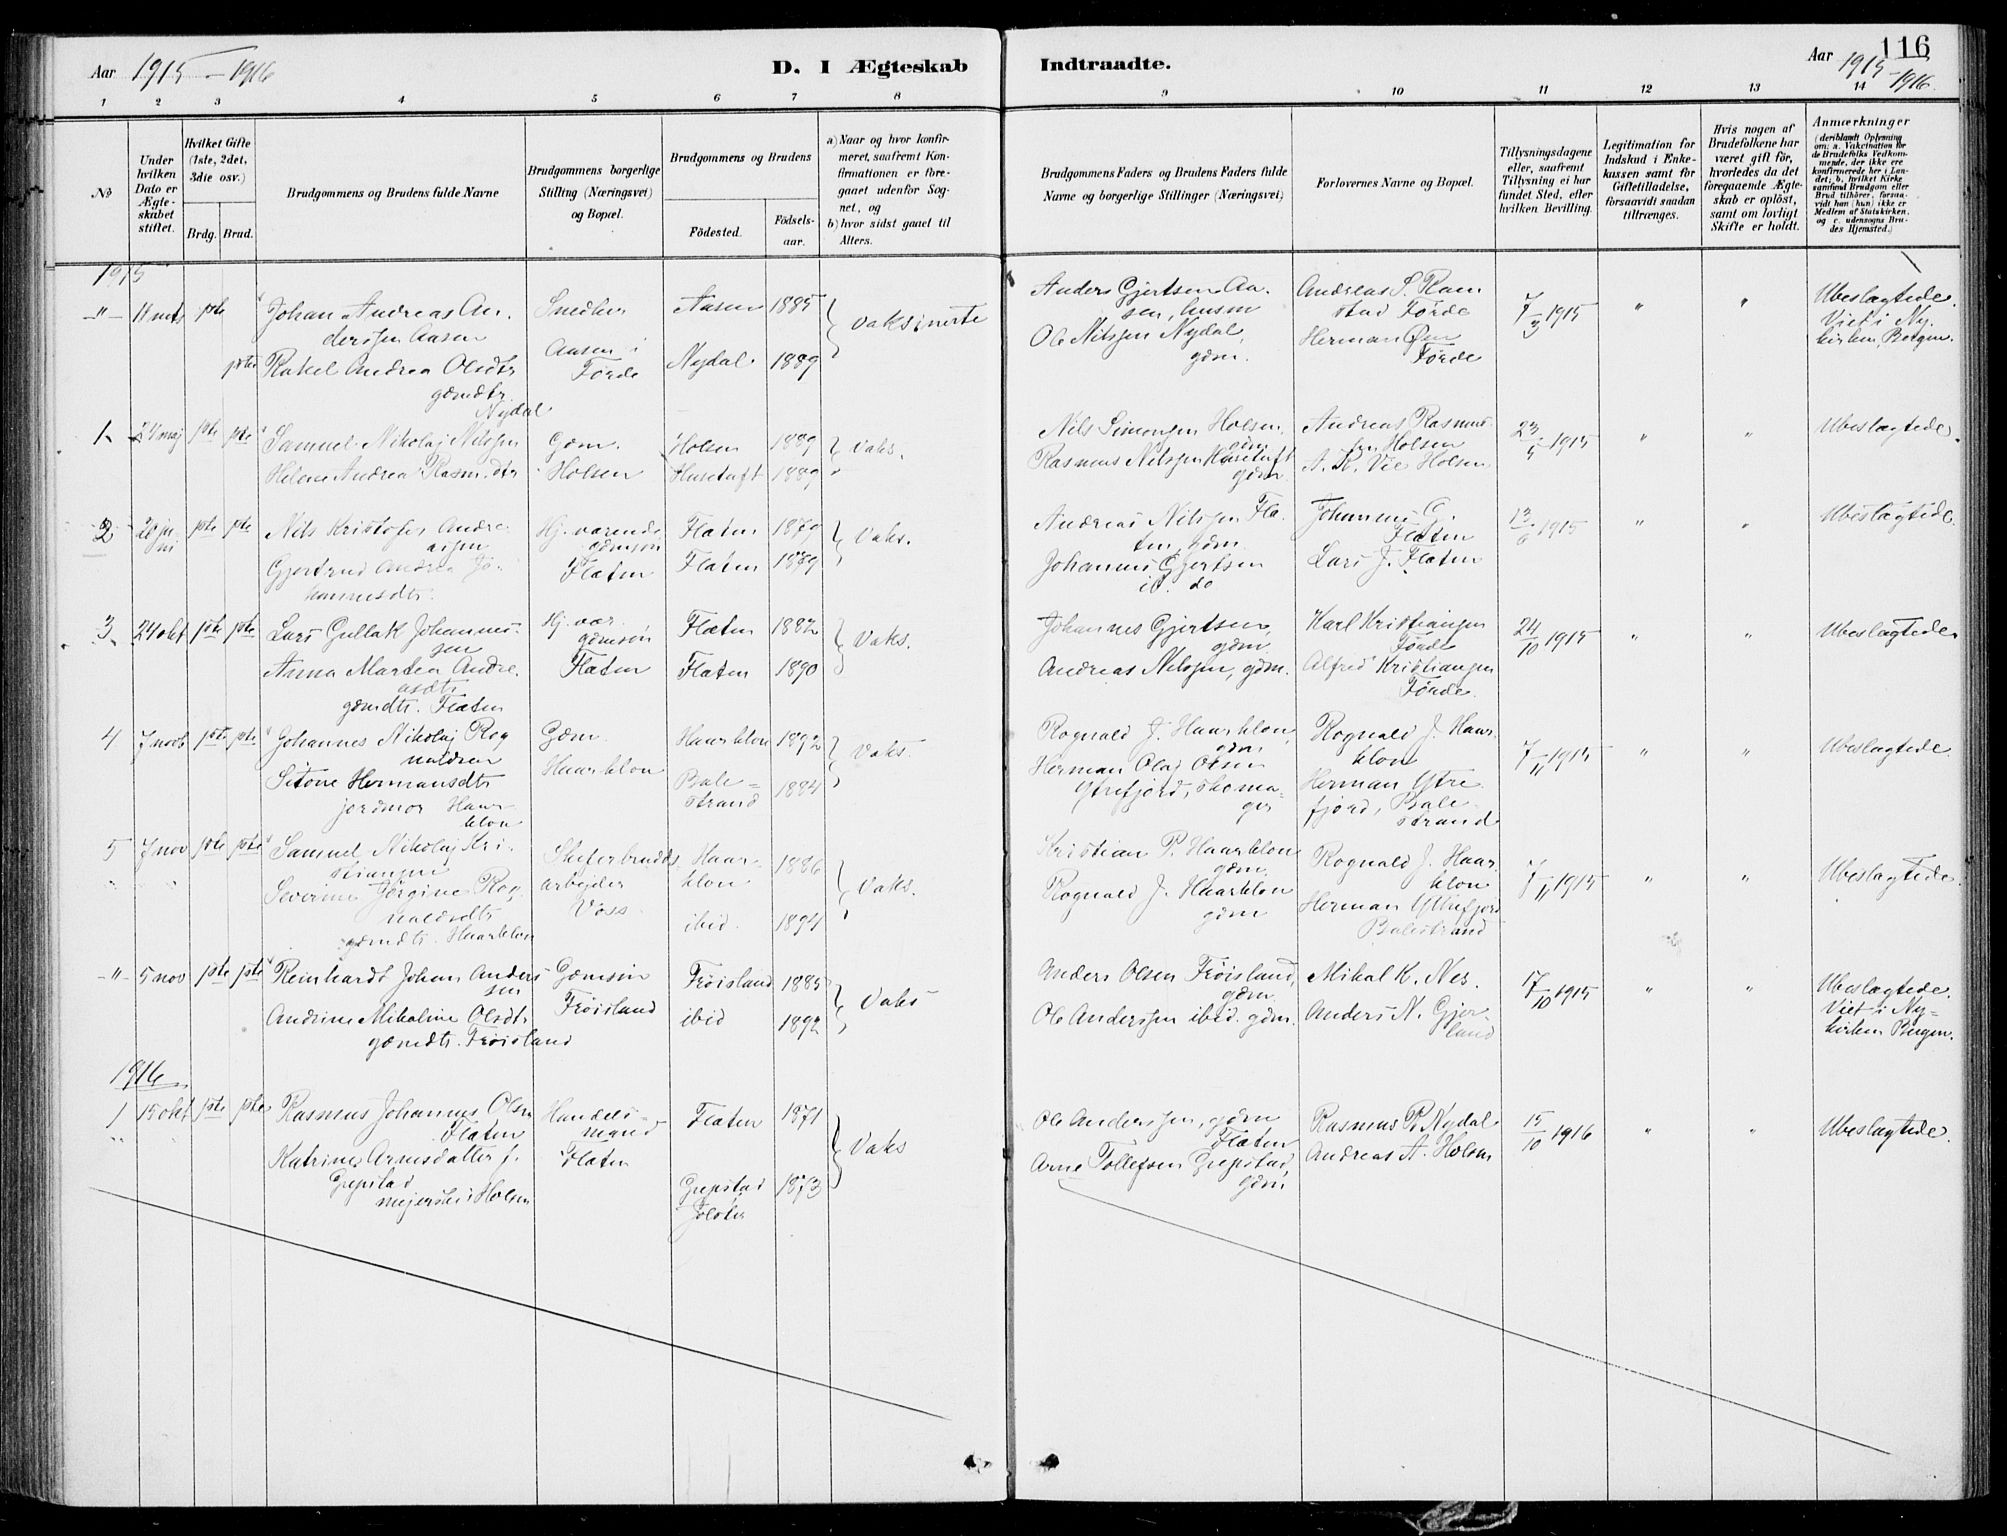 Aar 1915 - 1916
D. I Ægteskab Indtraadte.
Aar 1915 - 1916.
116
1 2 3 4 5 6 7 8 9 10 11 12 13 14
No
Under hvilken Dato er Ægteskabet stiftet.
Hvilket Gifte (1ste, 2det, 3die osv.)
Brdg. Brud.
Brudgommens og Brudens fulde Navne
Brudgommens borgerlige Stilling (Næringsvei) og Bopæl.
Brudgommens og Brudens
Födested.
Födselsaar.
a) Naar og hvor konfirmeret, saafremt Konfirmationen er foregaaet udenfor Sognet, og
b) hvor sidst gaaet til Alters.
Brudgommens Faders og Brudens Faders fulde Navne og borgerlige Stillinger (Næringsvei)
Forlovernes Navne og Bopæl.
Tillysningsdagene eller, saafremt Tillysning ei har fundet Sted, efter hvilken Bevilling.
Legitimation for Indskud i Enkekassen samt for Giftetilladelse, forsaavidt saadan tiltrænges.
Hvis nogen af Brudefolkene har været gift för, hvorledes da det foregaaende Ægteskab er oplöst, samt om lovligt Skifte er holdt.
Anmærkninger
(deriblandt Oplysning om: a. Vakcination for de Brudefolks Vedkommende, der ikke ere konfirmerede her i Landet; b. hvilket Kirkesamfund Brudgom eller Brud tilhörer, forsaavidt han (hun) ikke er Medlem af Statskirken, og c. udensogns Brudes Hjemsted.)
1915
-"- 11 mts 1ste Johan Andreas Anderssen Aasen Snedker Aasen 1885 vaksinerte Anders Gjertsen Aasen, husm Andreas S. Ramstad Førde 7/3 1915 " " Ubeslagtede. Viet i Nykirken, Bergen.
1ste Rakel Andrea Olsdtr gdmdtr. Nydal Aasen i Førde Nydal 1889 Ole Nilssen Nydal, gdm. Herman Øen Førde
1. 24 maj 1ste 1ste Samuel Nikolaj Nilssen Gdm. Holsen 1889 Vaks. Nils Simonsen Holsen gdm Andreas Rasmussen Holsen 23/5 1915 " " Ubeslagtede.
Helene Andrea Rasm.dtr Holsen Husetuft 1889 " Rasmus Nilssen Husetuft gdm A. R. Vie Holsen
2 20 juni 1ste 1ste Nils Kristofer Andreassen Hj. værende gdmsøn Flaten 1879 Vaks. Andreas Nilssen Flaten, gdm. Johannes G. Flaten 13/6 1915 " " Ubeslagtede
Gjertrud Andrea Johannesdtr. Flaten Flaten 1889 Johannes Gjertsen ib. do Lars J. Flaten
3 24 okt 1ste 1ste Lars Gullak Johannessen Hj. vær. gdmsøn Flaten 1882 Vaks. Johannes Gjertsen, gdm. Karl Kristiansen Førde 24/10 1915 " " Ubeslagtede
Anna Martea Andreasdtr gdmdtr. Flaten Flaten Flaten 1890 Andreas Nilssen, gdm. Alfred Kristiansen Førde.
4 7 novb 1ste 1ste Johannes Nikolaj Rognaldsen Gdm. Haarklon 1892 Vaks. Rognald J. Haarklon, gdm Rognald J. Haarklon 7/11 1915 " " Ubeslagtede
Sitone Hermansdtr jordmor Haarklon Haarklon Balestrand 1884 Herman Olaj Olsen Ytrefjord, skomager Herman Ytrefjord, Balestrand
5 7 nov 1ste 1ste Samuel Nikolaj Kristiansen Skiferbrudds arbejder Voss. Haarklon 1886 Vaks. Kristian P. Haarklon gdm. Rognald J. Haarklon 7/11 1915 " " Ubeslagtede.
Severine Jørgine Rognaldsdtr gdmdtr. Haarklon ibid. 1894 Rognald J. Haarklon gdm Herman Ytrefjord Balestrand
-"- 5 nov 1ste 1ste Reinhardt Johan Anderssen Gdmsøn Frøisland 1885 Vaks Anders Olsen Frøisland, gdm. Mikal K. Nes. 17/10 1915 " " Ubeslagtede. Viet i Nykirken Bergen.
Andrine Mikaline Olsdtr gdmdtr. Frøisland Frøisland ibid 1892 Ole Anderssen ibid. gdm. Anders N. Gjerland
1916
1 15 okt 1ste 1ste Rasmus Johannes Olsen Flaten Handelsmand Flaten 1871 Vaks Ole Anderssen, gdm Flaten Rasmus R. Nydal 15/10 1916 " " Ubeslagtede.
Katrine Arnesdatter f. Grepstad mejerske i Holsen Flaten Grepstad Jølster 1873 Arne Tollefsen Grepstad, gdm. Andreas A. Holsen